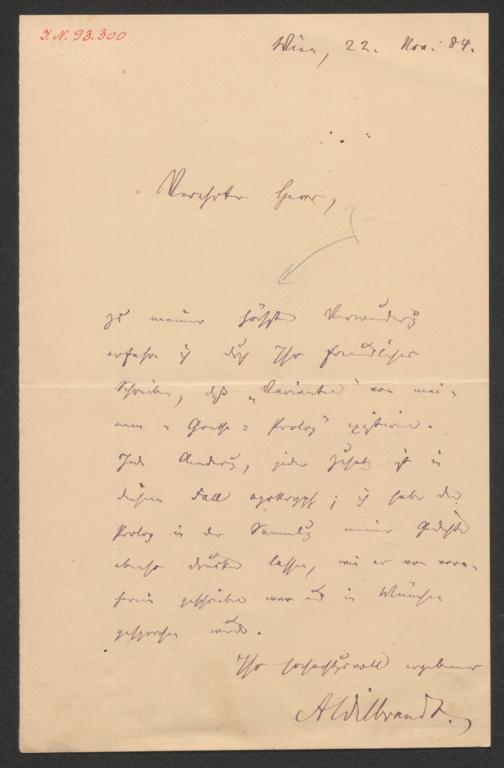 J. N. 93.300
Wien, 22. Nov. 84.
Verehrter Herr,
zu meiner höchsten Verwunderg
erfahre ich durch Ihr freundliches
Schreiben, daß „Varianten" von mei-
nem „Goethe-Prolog" existiren.
Jede Änderg, jeder Zusatz ist in
diesem Fall apokryph; ich habe den
Prolog in der Sammlg meiner Gedichte
ebenso drucken lassen, wie er von vorn-
herein geschrieben war und in München
gesprochen wurde.
Ihr hochachtungsvoll ergebener
AWilbrandt.